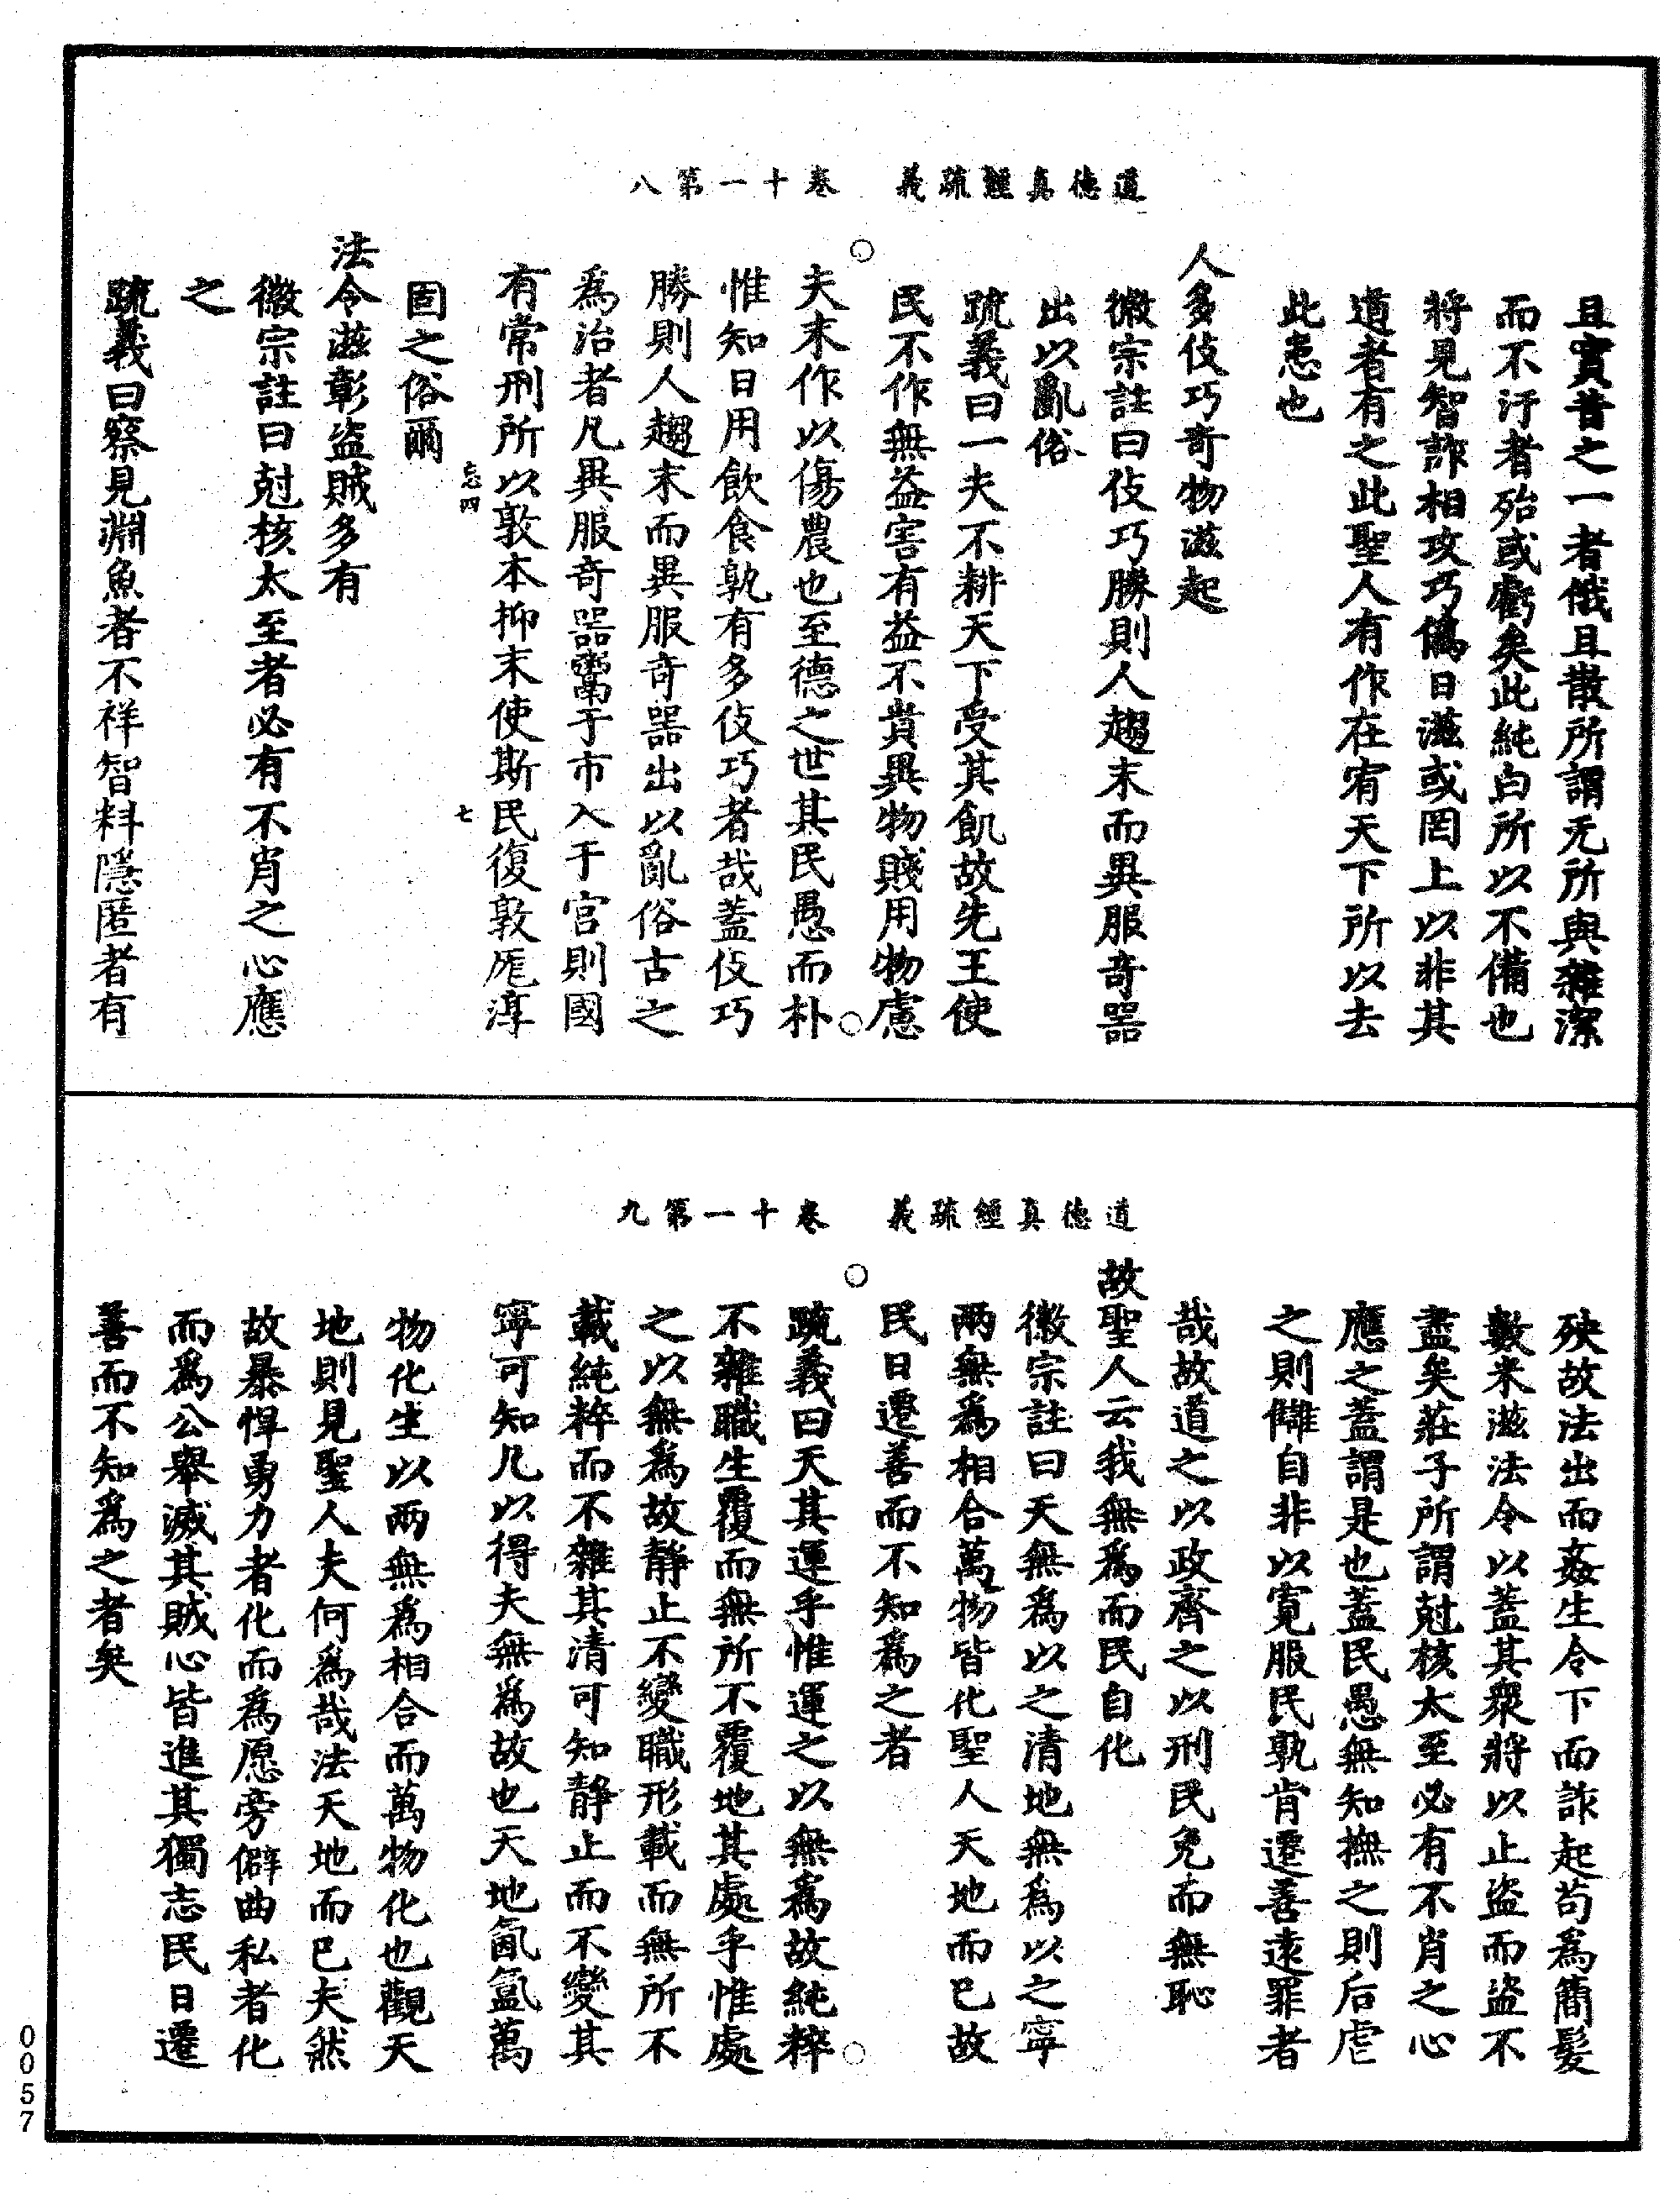 道德真經疏義　卷十一第八
且實昔之一者俄且散所謂无所與雜潔
而不汙者殆或虧矣此純白所以不備也
將見智詐相攻巧僞日滋或罔上以非其
道者有之此聖人有作在宥天下所以去
此患也
人多伎巧奇物滋起
徽宗註曰伎巧勝則人趨末而異服奇器
出以亂俗
疏義曰一夫不耕天下受其飢故先王使
民不作無益害有益不貴異物賤用物慮
夫末作以傷農也至德之世其民愚而朴
惟知日用飲食孰有多伎巧者哉蓋伎巧
勝則人趨末而異服奇器出以亂俗古之
爲治者凡異服奇器鬻于市入于宮則國
有常刑所以敦本抑末使斯民復敦厖淳
忘四　七
固之俗爾
法令滋彰盜賊多有
徽宗註曰尅核太至者必有不肖之心應
之
疏義曰察見淵魚者不祥智料隱匿者有
道德真經疏義　卷十一第九
殃故法出而姦生令下而詐起苟爲簡髮
數米滋法令以蓋其衆將以止盜而盜不
盡矣莊子所謂尅核太至必有不肖之心
應之蓋謂是也蓋民愚無知撫之則后虐
之則讎自非以寬服民孰肯遷善遠罪者
哉故道之以政齊之以刑民免而無恥
故聖人云我無爲而民自化
徽宗註曰天無爲以之清地無爲以之寧
兩無爲相合萬物皆化聖人天地而已故
民日遷善而不知爲之者
疏義曰天其運乎惟運之以無爲故純粹
不雜職生覆而無所不覆地其處乎惟處
之以無爲故靜止不變職形載而無所不
載純粹而不雜其清可知靜止而不變其
寧可知凡以得夫無爲故也天地氤氳萬
物化生以兩無爲相合而萬物化也觀天
地則見聖人夫何爲哉法天地而已夫然
故暴悍勇力者化而爲愿旁僻曲私者化
而爲公舉滅其賊心皆進其獨志民日遷
善而不知爲之者矣
0057